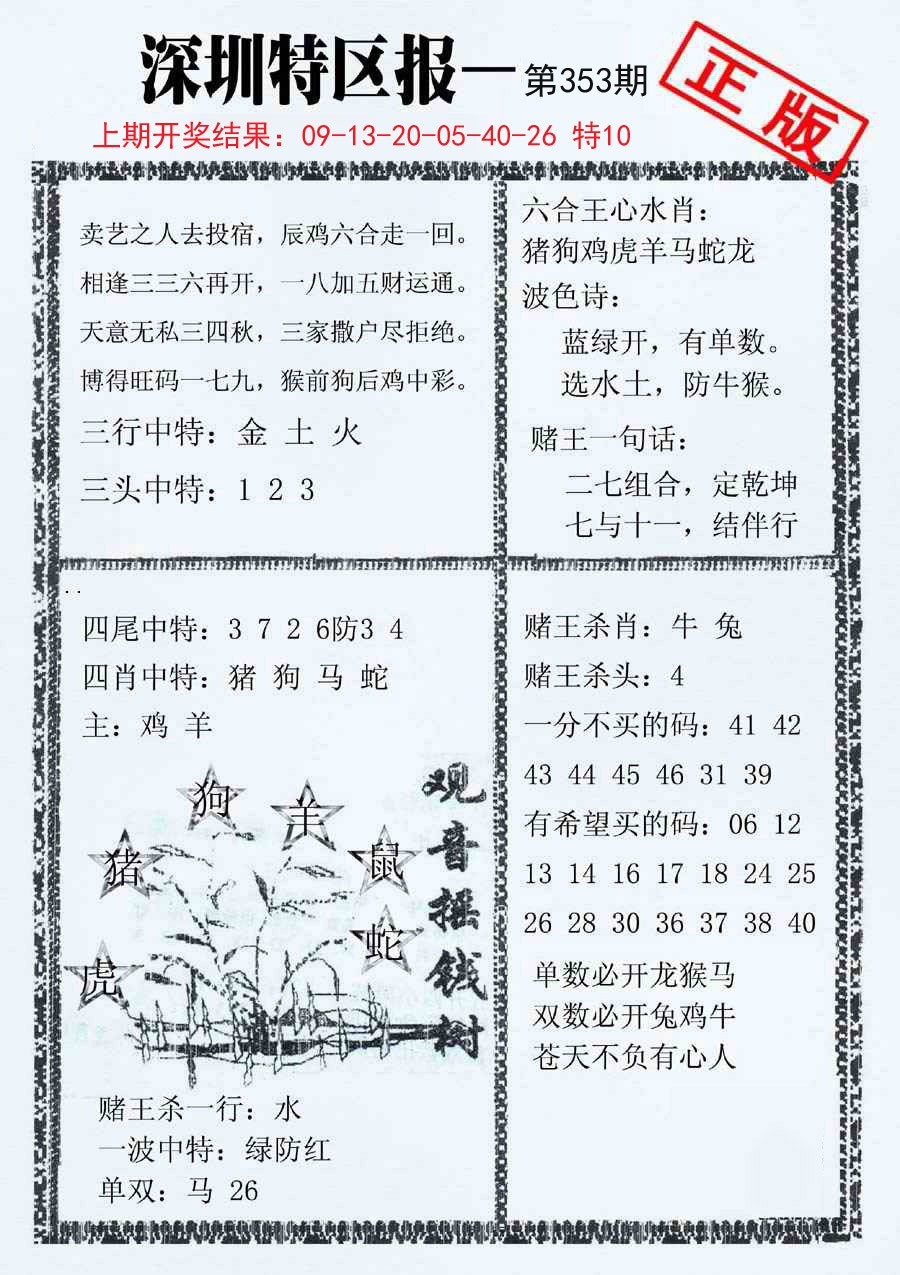 深圳特区报一第353期
正版
上期开奖结果：09-13-20-05-40-26 特10
卖艺之人去投宿，辰鸡六合走一回。
相逢三三六再开，一八加五财运通。
天意无私三四秋，三家撒户尽拒绝。
博得旺码一七九，猴前狗后鸡中彩。
三行中特：金 土 火
三头中特：1 2 3
六合王心水肖：
猪狗鸡虎羊马蛇龙
波色诗：
蓝绿开，有单数。
选水土，防牛猴。
赌王一句话：
二七组合，定乾坤
七与十一，结伴行
四尾中特：3 7 2 6防3 4
四肖中特：猪 狗 马 蛇
主：鸡 羊
狗
羊
猪
鼠
蛇
虎
观音摇钱树
赌王杀一行：水
一波中特：绿防红
单双：马 26
赌王杀肖：牛 兔
赌王杀头：4
一分不买的码：41 42
43 44 45 46 31 39
有希望买的码：06 12
13 14 16 17 18 24 25
26 28 30 36 37 38 40
单数必开龙猴马
双数必开兔鸡牛
苍天不负有心人